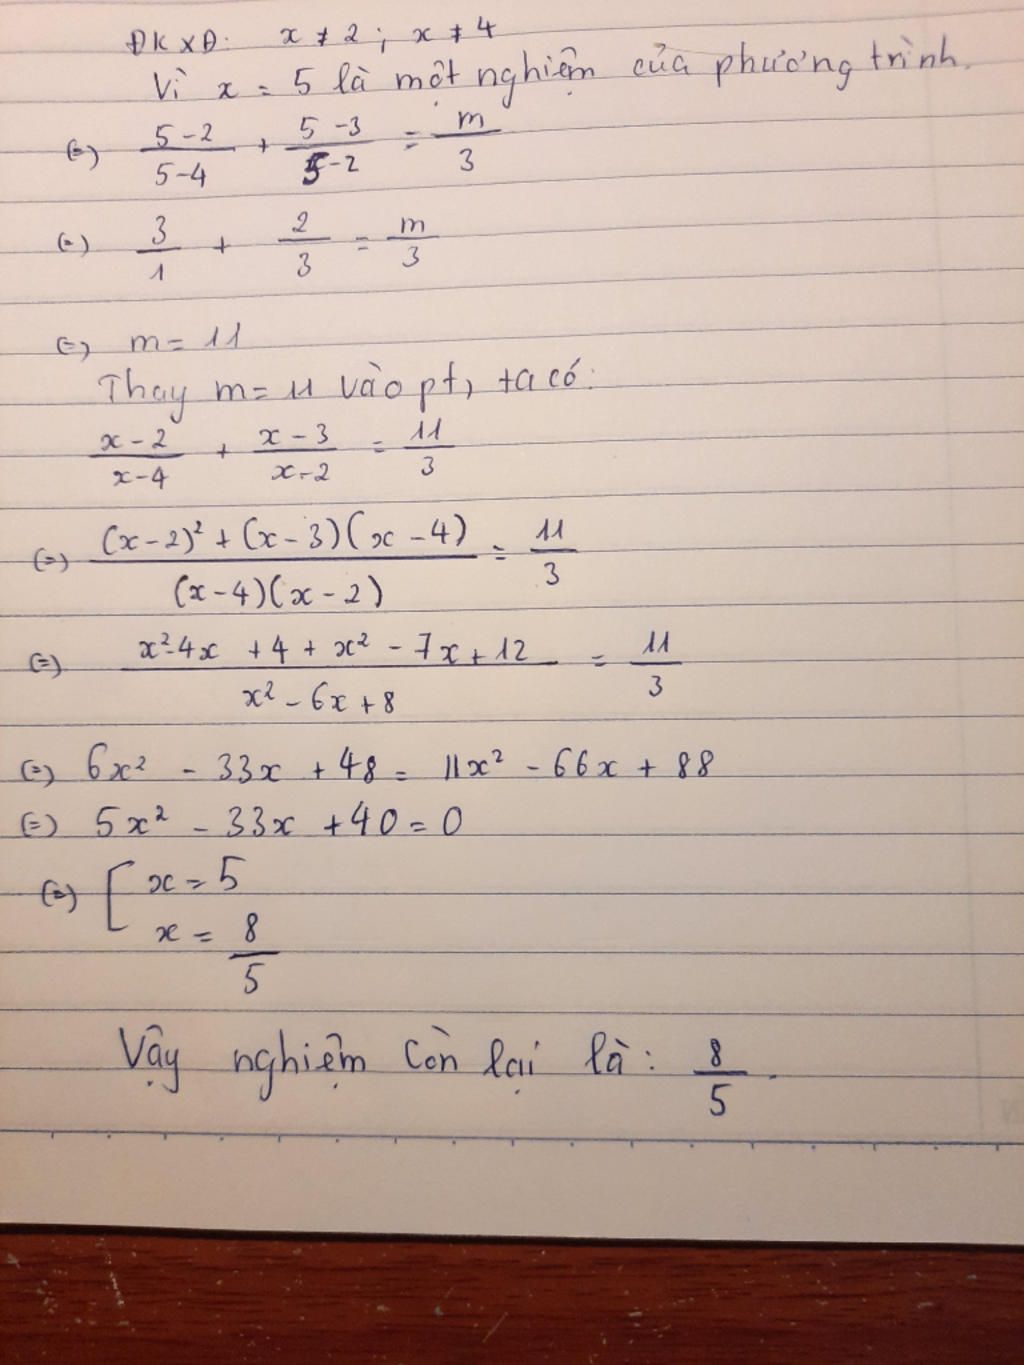 ĐKXĐ: x ≠ 2 ; x ≠ 4
Vì x = 5 là một nghiệm của phương trình.
(=) (5-2)/(5-4) + (5-3)/(5-2) = m/3
(=) 3/1 + 2/3 = m/3
(=) m = 11
Thay m = 11 vào pt, ta có:
(x-2)/(x-4) + (x-3)/(x-2) = 11/3
(=) ((x-2)² + (x-3)(x-4))/((x-4)(x-2)) = 11/3
(=) (x²-4x + 4 + x² - 7x + 12)/(x² - 6x + 8) = 11/3
(=) 6x² - 33x + 48 = 11x² - 66x + 88
(=) 5x² - 33x + 40 = 0
(=) [ x = 5
x = 8/5
Vậy nghiệm còn lại là: 8/5.